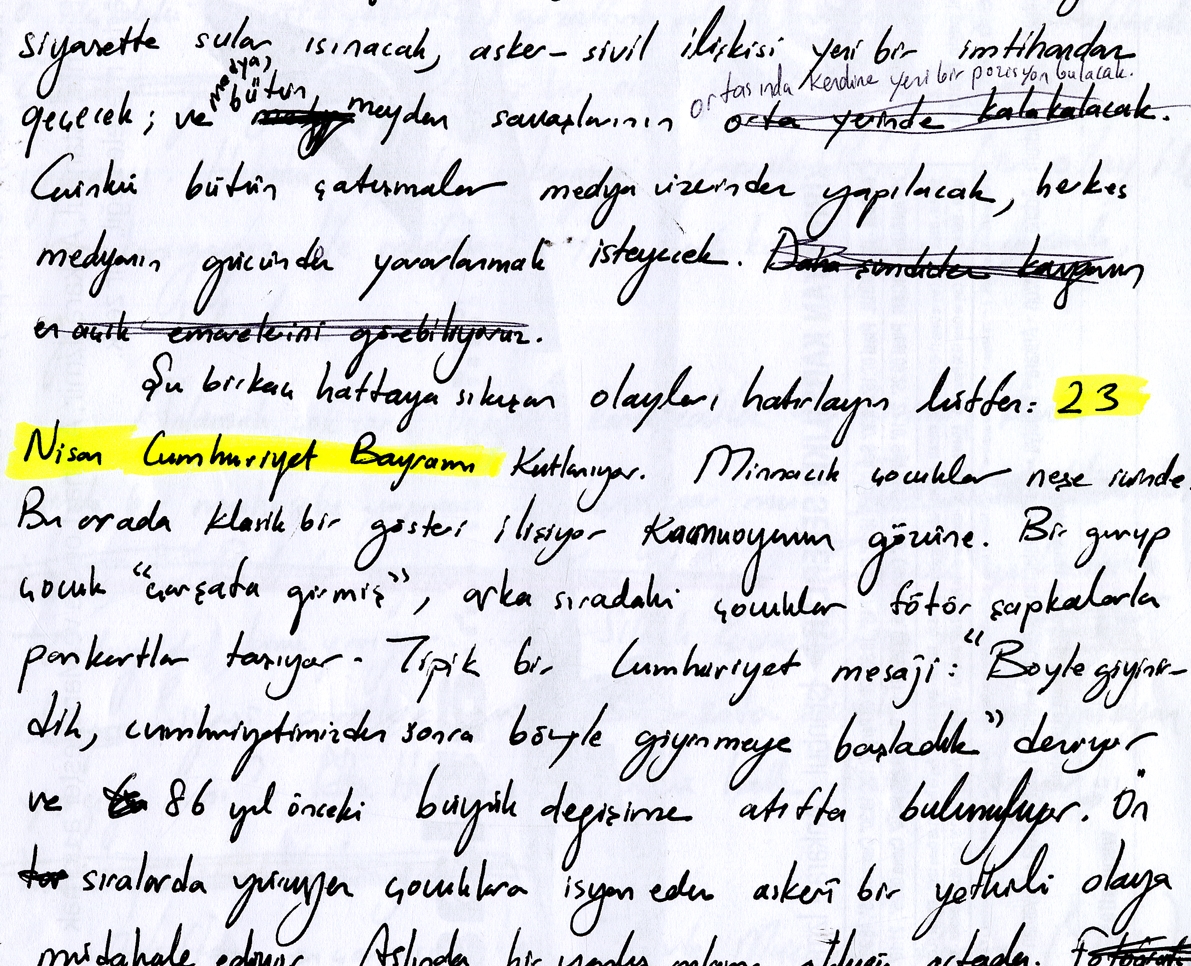 siyasette sular ısınacak, asker-sivil ilişkisi yeni bir imtihandan
ortasında kendine yeni bir pozisyon bulacak.
medya, bütün
geçecek; ve meydan savaşlarının orta yerinde kalakalacak.
Çünkü bütün çatışmalar medya üzerinden yapılacak, herkes
medyanın gücünden yararlanmak isteyecek. Daha şimdiden kavganın
en açık emarelerini görebiliyoruz.
Şu birkaç haftaya sıkışan olayları hatırlayın lütfen: 23
Nisan Cumhuriyet Bayramı kutlanıyor. Minnacık çocuklar neşe içinde.
Bu arada klasik bir gösteri ilişiyor kamuoyunun gözüne. Bir gurup
çocuk “çarşafa girmiş”, arka sıradaki çocuklar fötör şapkalarla
pankartlar taşıyor. Tipik bir Cumhuriyet mesajı: “Böyle giyinir-
dik, cumhuriyetimizden sonra böyle giyinmeye başladık” deniyor
ve 86 yıl önceki büyük değişime atıfta bulunuluyor. Ön
sıralarda yürüyen çocuklara isyan eden askerî bir yetkili olaya
müdahale ediyor. Aslında bir